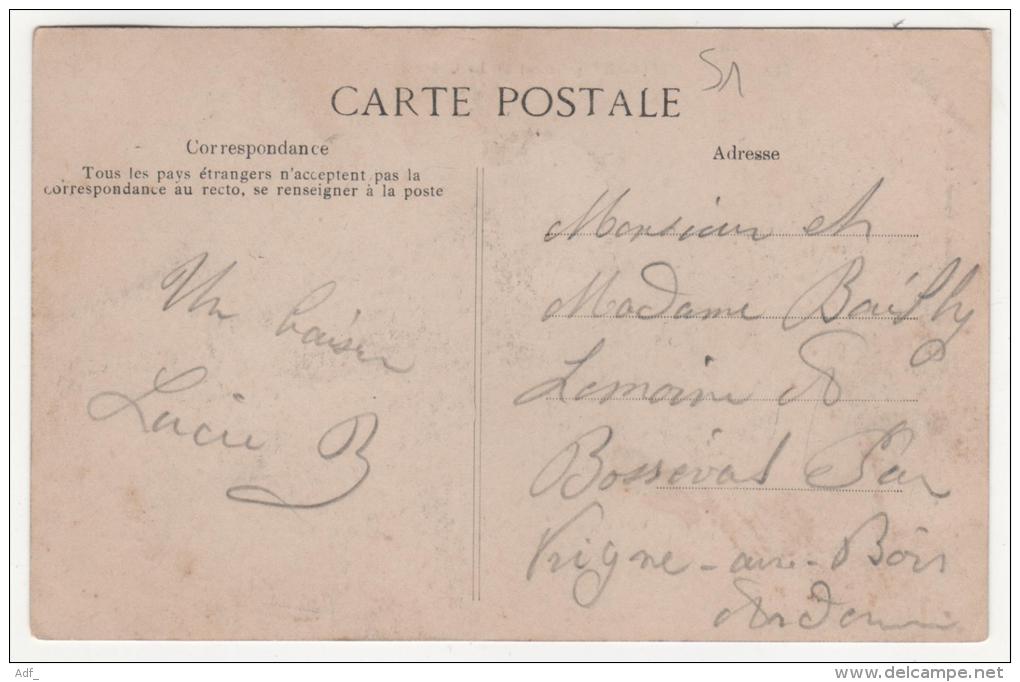 51
CARTE POSTALE
Correspondance
Tous les pays étrangers n'acceptent pas la
correspondance au recto, se renseigner à la poste
Un baiser
Lucie B
Adresse
Monsieur et
Madame Bailly
Lemoine à
Bosséval Par
Vrigne-aux-Bois
Ardennes
Adf_
www.delcampe.net